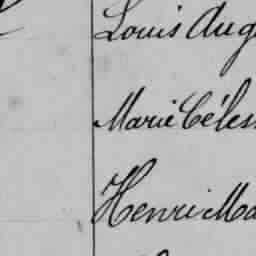 Louis Aug
Marie Céles
Henri Ma